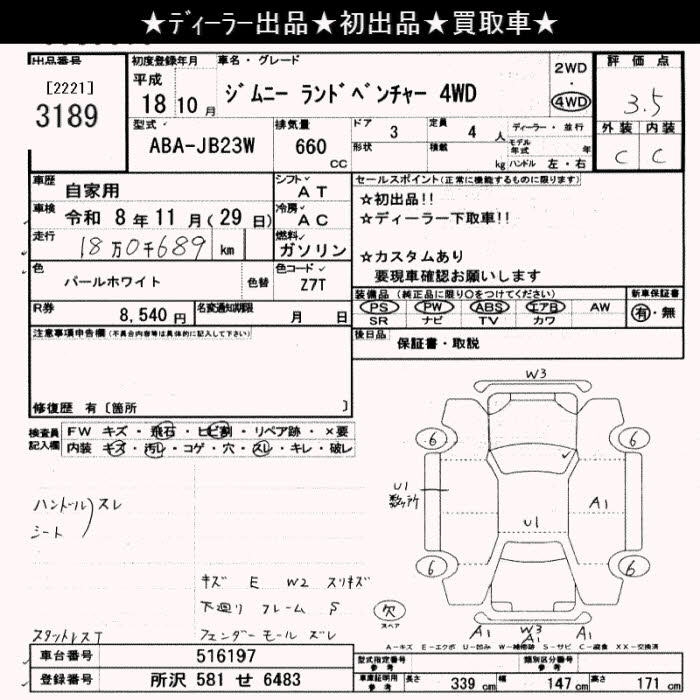 ★ディーラー出品★初出品★買取車★
出品番号 初度登録年月 車名・グレード 2WD 評価点
[2221] 平成
3189 18 10 月 ジムニー ランドベンチャー 4WD 4WD 3.5
型式 排気量 ドア 3 定員 4 人 ディーラー・並行 外装 内装
ABA-JB23W 660 CC 形状 積載 kg モデル年式 年 C C
ハンドル 左・右
車歴 自家用 シフト AT セールスポイント(正常に機能するものに限ります)
車検 令和 8 年 11 月(29 日) 冷房 AC ★初出品!!
★ディーラー下取車!!
走行 18万0千689 km 燃料 ガソリン ★カスタムあり
要現車確認お願いします
色 パールホワイト 色替 色コード Z7T
装備品(純正品に限り○をつけてください) 新車保証書
R券 8,540 円 名変通知期限 月 日 PS PW ABS エアB AW 有・無
SR ナビ TV カワ
注意事項申告欄(不具合内容等は具体的に記入して下さい) 後日品 保証書・取説
修復歴 有〔箇所 〕
検査員記入欄 FW キズ・飛石・ヒビ割・リペア跡・×要
内装 キズ・汚レ・コゲ・穴・スレ・キレ・破レ
W3
6 6
ハンドル スレ
シート
U1
数ヶ所
A1
U1
6 6
キズ E W2 スリキズ
下廻り フレーム S
欠
スペア
スタットレスT フェンダーモール ズレ
A1 W3 A1
A1
A-キズ E-エクボ U-凹み W-補修跡 S-サビ C-腐食 XX-交換済
車台番号 516197 型式指定番号 参考 類別区分番号 参考
登録番号 所沢 581 せ 6483 車庫証明用 参考 長さ 339 cm 幅 147 cm 高さ 171 cm